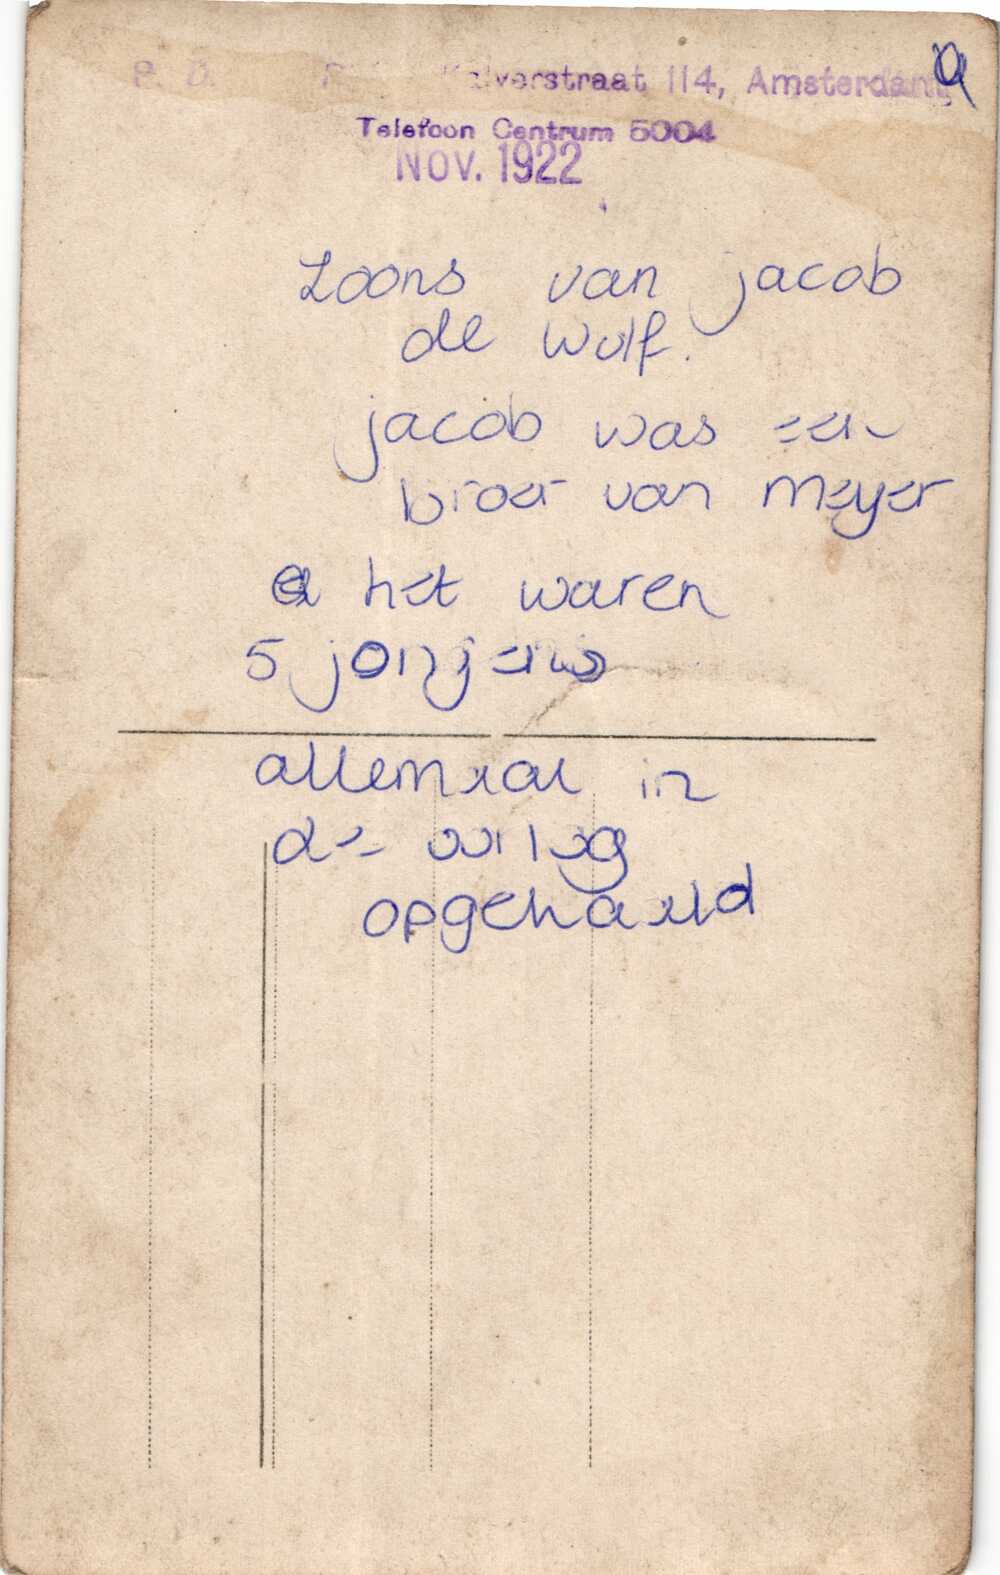 Kalverstraat 114, Amsterdam
Telefoon Centrum 5004
Nov. 1922
Zoons van jacob
de wolf.
jacob was een
broer van meyer
het waren
5 jonjens
allemaal in
de oorlog
opgehaald